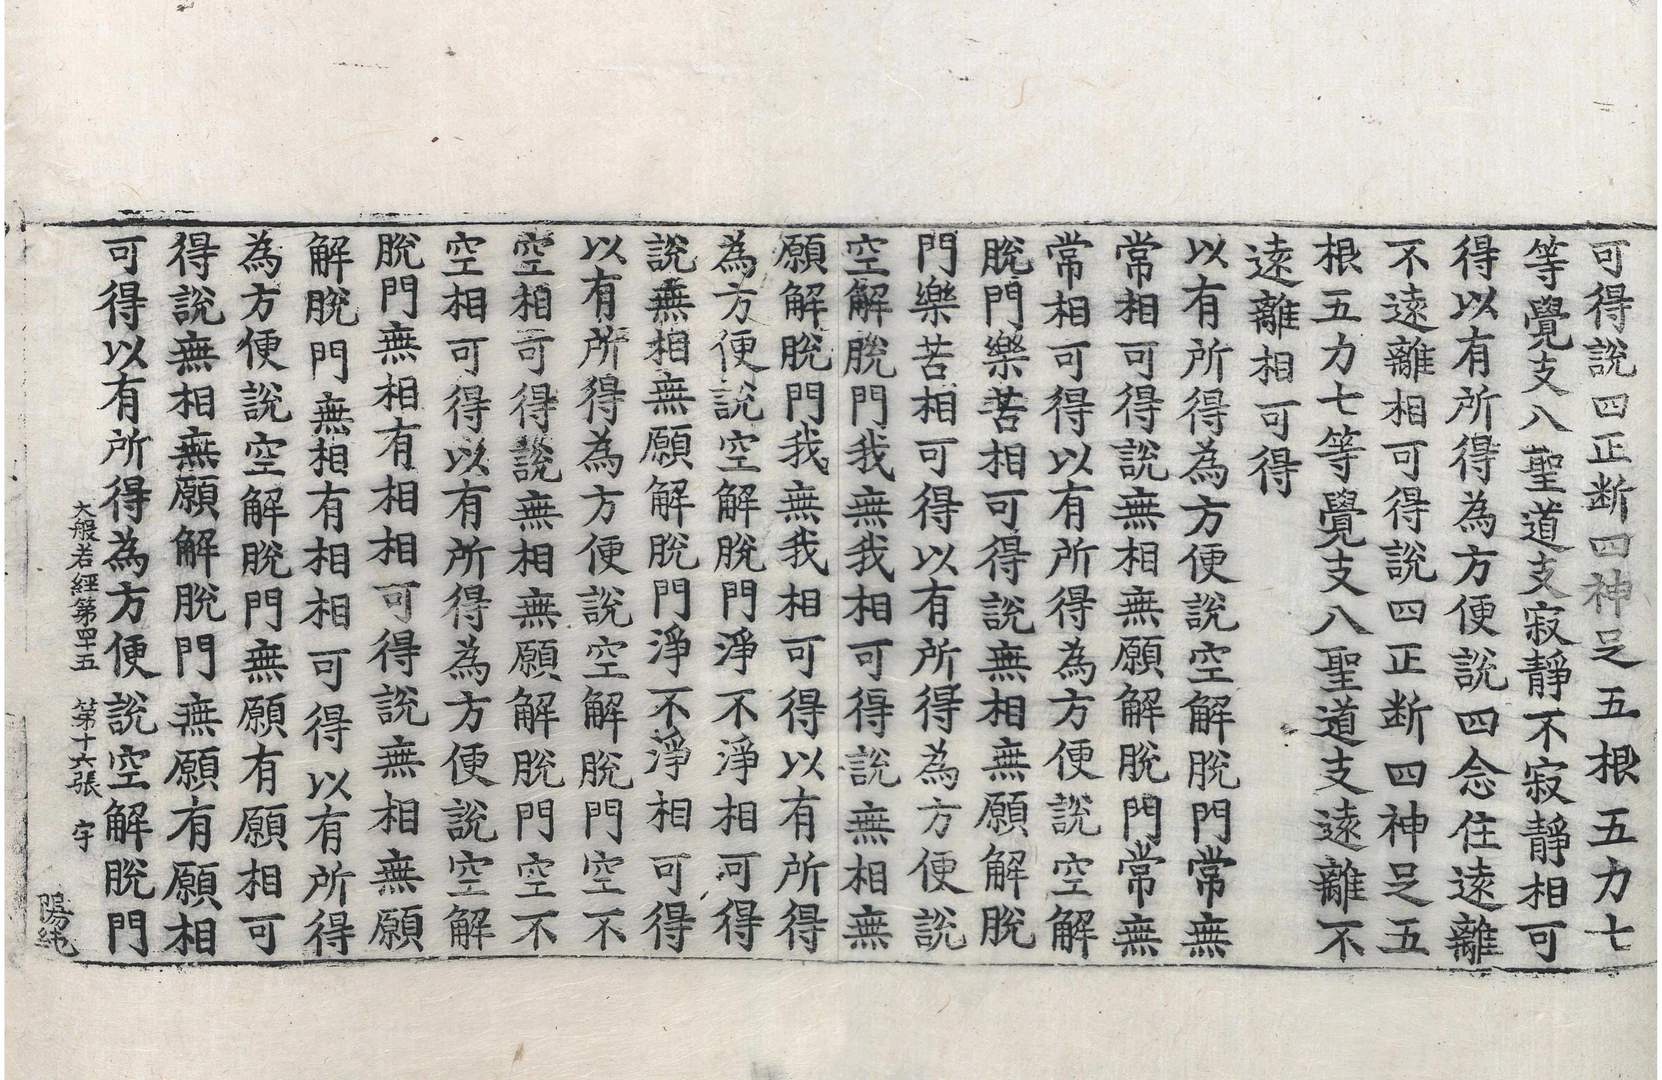 可得說四正断四神足五根五力七
等覺支八聖道支寂靜不寂靜相可
得以有所得為方便說四念住遠離
不遠離相可得說四正断四神足五
根五力七等覺支八聖道支遠離不
遠離相可得
以有所得為方便說空解脫門常無
常相可得說無相無願解脫門常無
常相可得以有所得為方便說空解
脫門樂苦相可得說無相無願解脫
門樂苦相可得以有所得為方便說
空解脫門我無我相可得說無相無
願解脫門我無我相可得以有所得
為方便說空解脫門淨不淨相可得
說無相無願解脫門淨不淨相可得
以有所得為方便說空解脫門空不
空相可得說無相無願解脫門空不
空相可得以有所得為方便說空解
脫門無相有相相可得說無相無願
解脫門無相有相相可得以有所得
為方便說空解脫門無願有願相可
得說無相無願解脫門無願有願相
可得以有所得為方便說空解脫門
大般若經第四十五 第十六張 宇